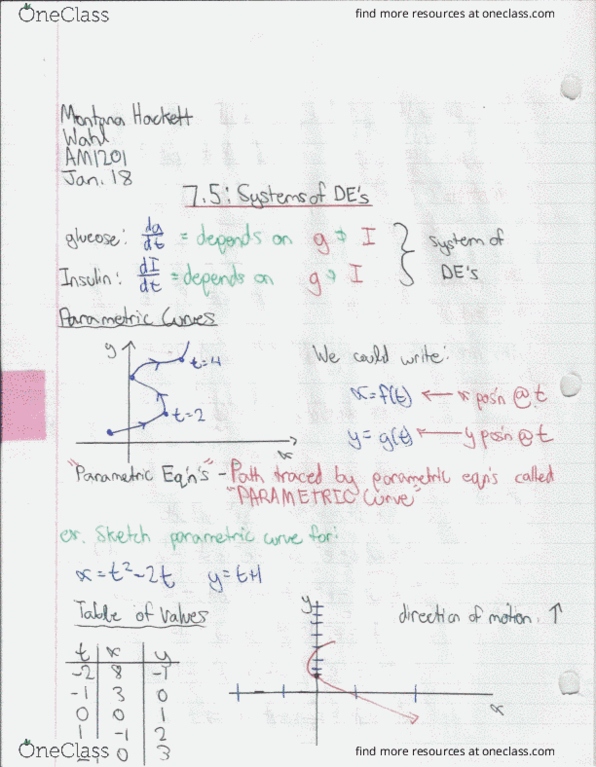 OneClass
find more resources at oneclass.com
Montana Hackett
Wahl
AM1201
Jan. 18
7.5: Systems of DE's
glucose: dg/dt = depends on g & I
Insulin: dI/dt = depends on g & I
system of DE's
Parametric Curves
y
t=4
t=2
x
We could write:
x=f(t) ← x pos'n @ t
y=g(t) ← y pos'n @ t
"Parametric Eq'n's" - Path traced by parametric eqn's called
"PARAMETRIC Curve"
ex. Sketch parametric curve for:
x=t²-2t y=t+1
Table of Values
y
direction of motion: ↑
x
t x y
-2 8 -1
-1 3 0
0 0 1
1 -1 2
0 3
OneClass
find more resources at oneclass.com